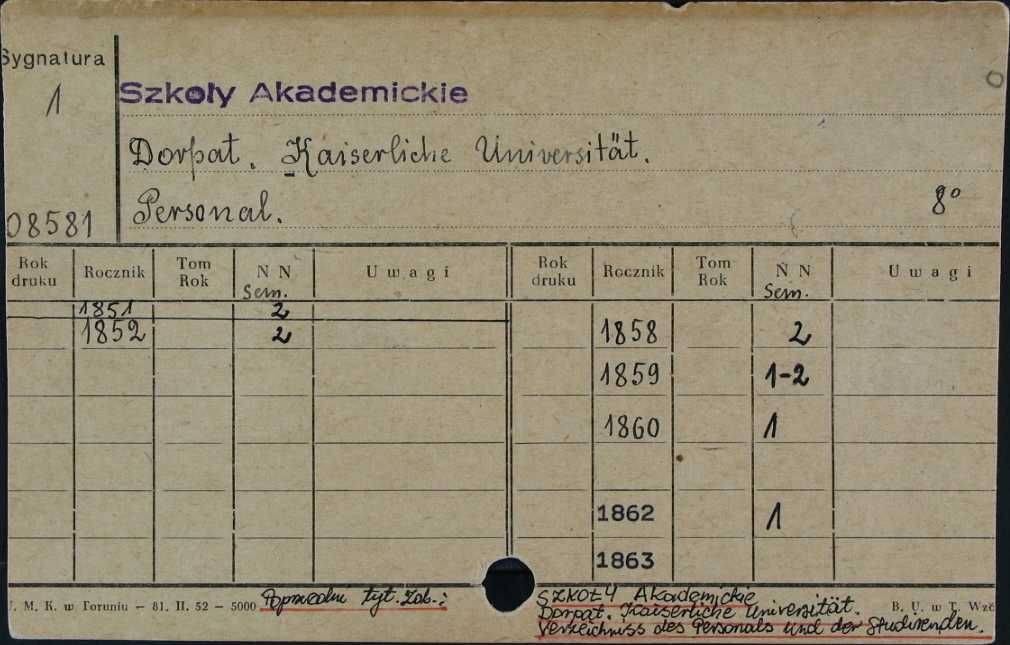 Sygnatura
1
Szkoły Akademickie
Dorpat. Kaiserliche Universität.
Personal. 8°
08581
Rok druku Rocznik Tom Rok N N Sem. Uwagi Rok druku Rocznik Tom Rok N N Sem. Uwagi
1851 2
1852 2 1858 2
1859 1-2
1860 1
1862 1
1863
U. M. K. w Toruniu — 81. II. 52 — 5000 Poprzedni tyt. zob.: SZKOŁY Akademickie B. U. w T. Wzó
Dorpat. Kaiserliche Universität.
Verzeichniss des Personals und der Studirenden.